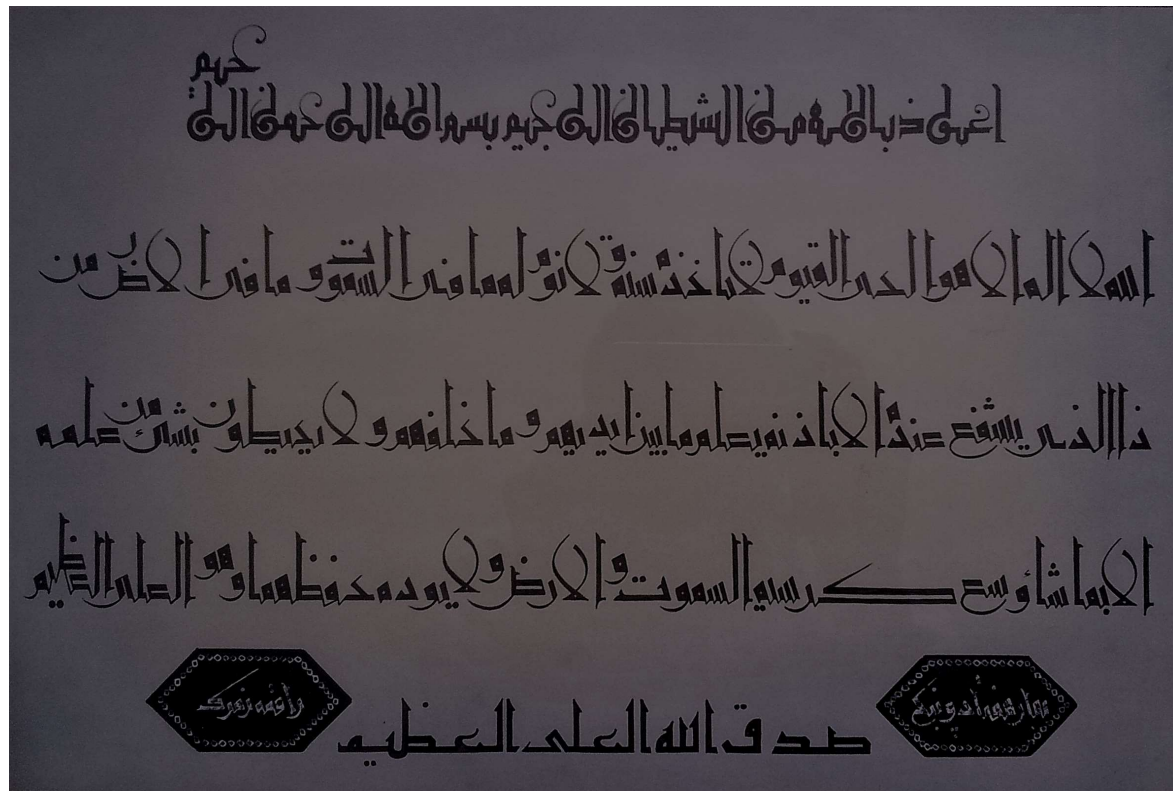 اعوذ بالله من الشيطان الرجيم بسم الله الرحمن الرحيم
الله لا اله الا هو الحي القيوم لا تاخذه سنة ولا نوم له ما في السموت وما في الارض من
ذا الذي يشفع عنده الا باذنه يعلم ما بين ايديهم وما خلفهم ولا يحيطون بشئ من علمه
الا بما شاء وسع كرسيه السموت والارض ولا يوده حفظهما وهو العلي العظيم
صدق الله العلي العظيم